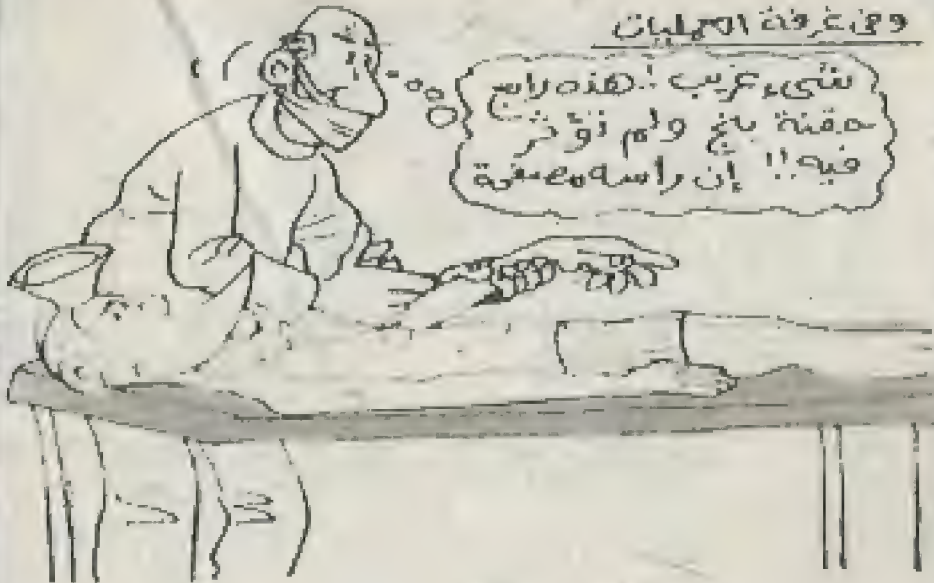 وفي غرفة العمليات
شيء غريب !! هذه رابع
حقنة بنج ولم تؤثر
فيه !! إن راسه مصفحة